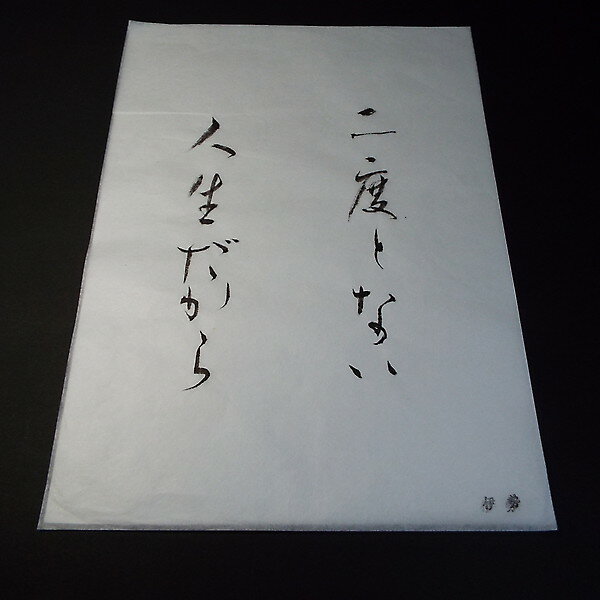 二度とない
人生だから
伊勢